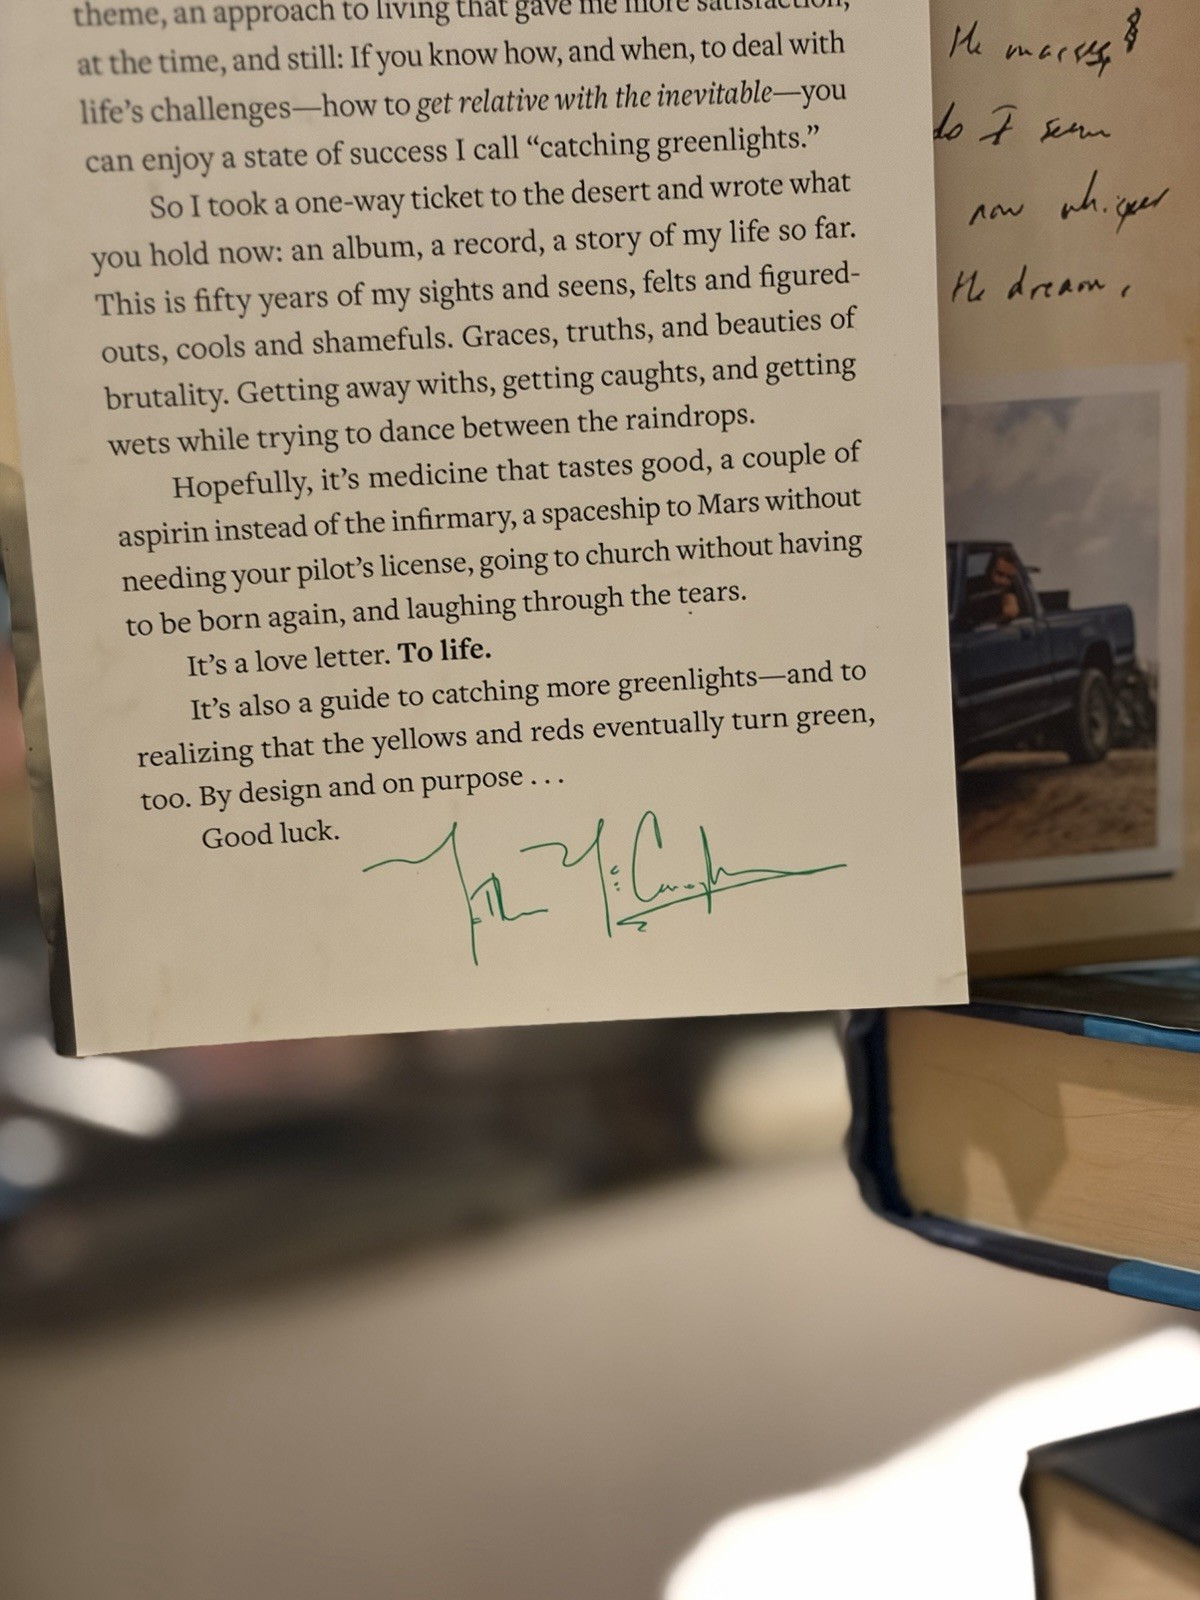 theme, an approach to living that gave me more satisfaction,
at the time, and still: If you know how, and when, to deal with
life’s challenges—how to get relative with the inevitable—you
can enjoy a state of success I call “catching greenlights.”
So I took a one-way ticket to the desert and wrote what
you hold now: an album, a record, a story of my life so far.
This is fifty years of my sights and seens, felts and figured-
outs, cools and shamefuls. Graces, truths, and beauties of
brutality. Getting away withs, getting caughts, and getting
wets while trying to dance between the raindrops.
Hopefully, it’s medicine that tastes good, a couple of
aspirin instead of the infirmary, a spaceship to Mars without
needing your pilot’s license, going to church without having
to be born again, and laughing through the tears.
It’s a love letter. To life.
It’s also a guide to catching more greenlights—and to
realizing that the yellows and reds eventually turn green,
too. By design and on purpose . . .
Good luck.
the masses
do I seem
now whisper
the dream,